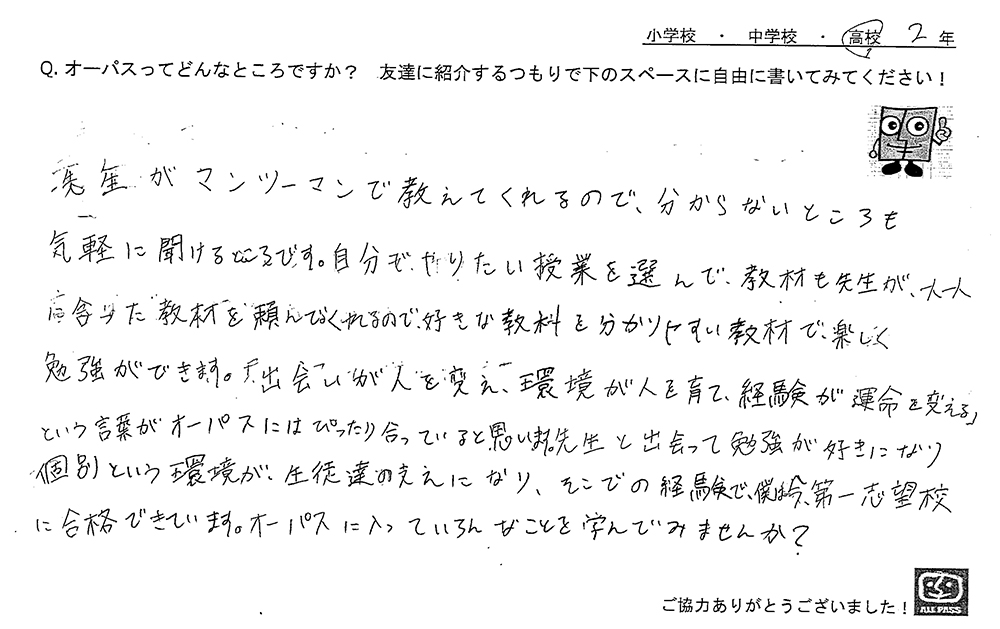 小学校 ・ 中学校 ・ 高校 2 年
Q. オーパスってどんなところですか？ 友達に紹介するつもりで下のスペースに自由に書いてみてください！
先生がマンツーマンで教えてくれるので、分からないところも
気軽に聞けるところです。自分でやりたい授業を選んで、教材も先生が、一人一人
に合った教材を頼んでくれるので、好きな教科を分かりやすい教材で、楽しく
勉強ができます。「出会いが人を変え、環境が人を育て、経験が運命を変える」
という言葉がオーパスにはぴったり合っていると思います。先生と出会って勉強が好きになり
個別という環境が、生徒達の支えになり、そこでの経験で、僕は今、第一志望校
に合格できています。オーパスに入っていろんなことを学んでみませんか？
ご協力ありがとうございました！
ALL PASS